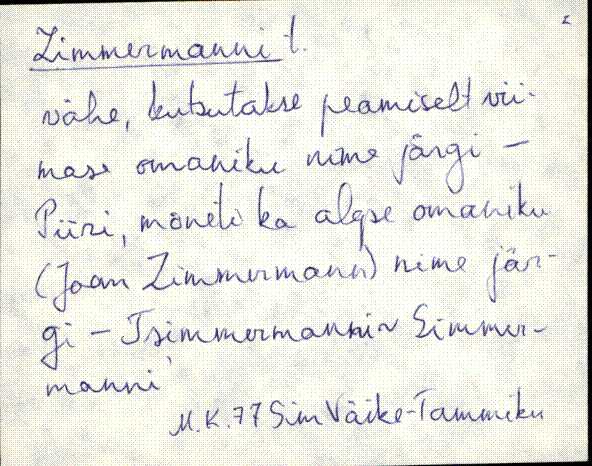 Zimmermanni t.
vähe, kutsutakse peamiselt vii-
mase omaniku nime järgi –
Piiri, mõneti ka algse omaniku
(Jaan Zimmermann) nime jär-
gi – Tsimmermanni ~ Simmer-
manni
M.K.77 Sim Väike-Tammiku